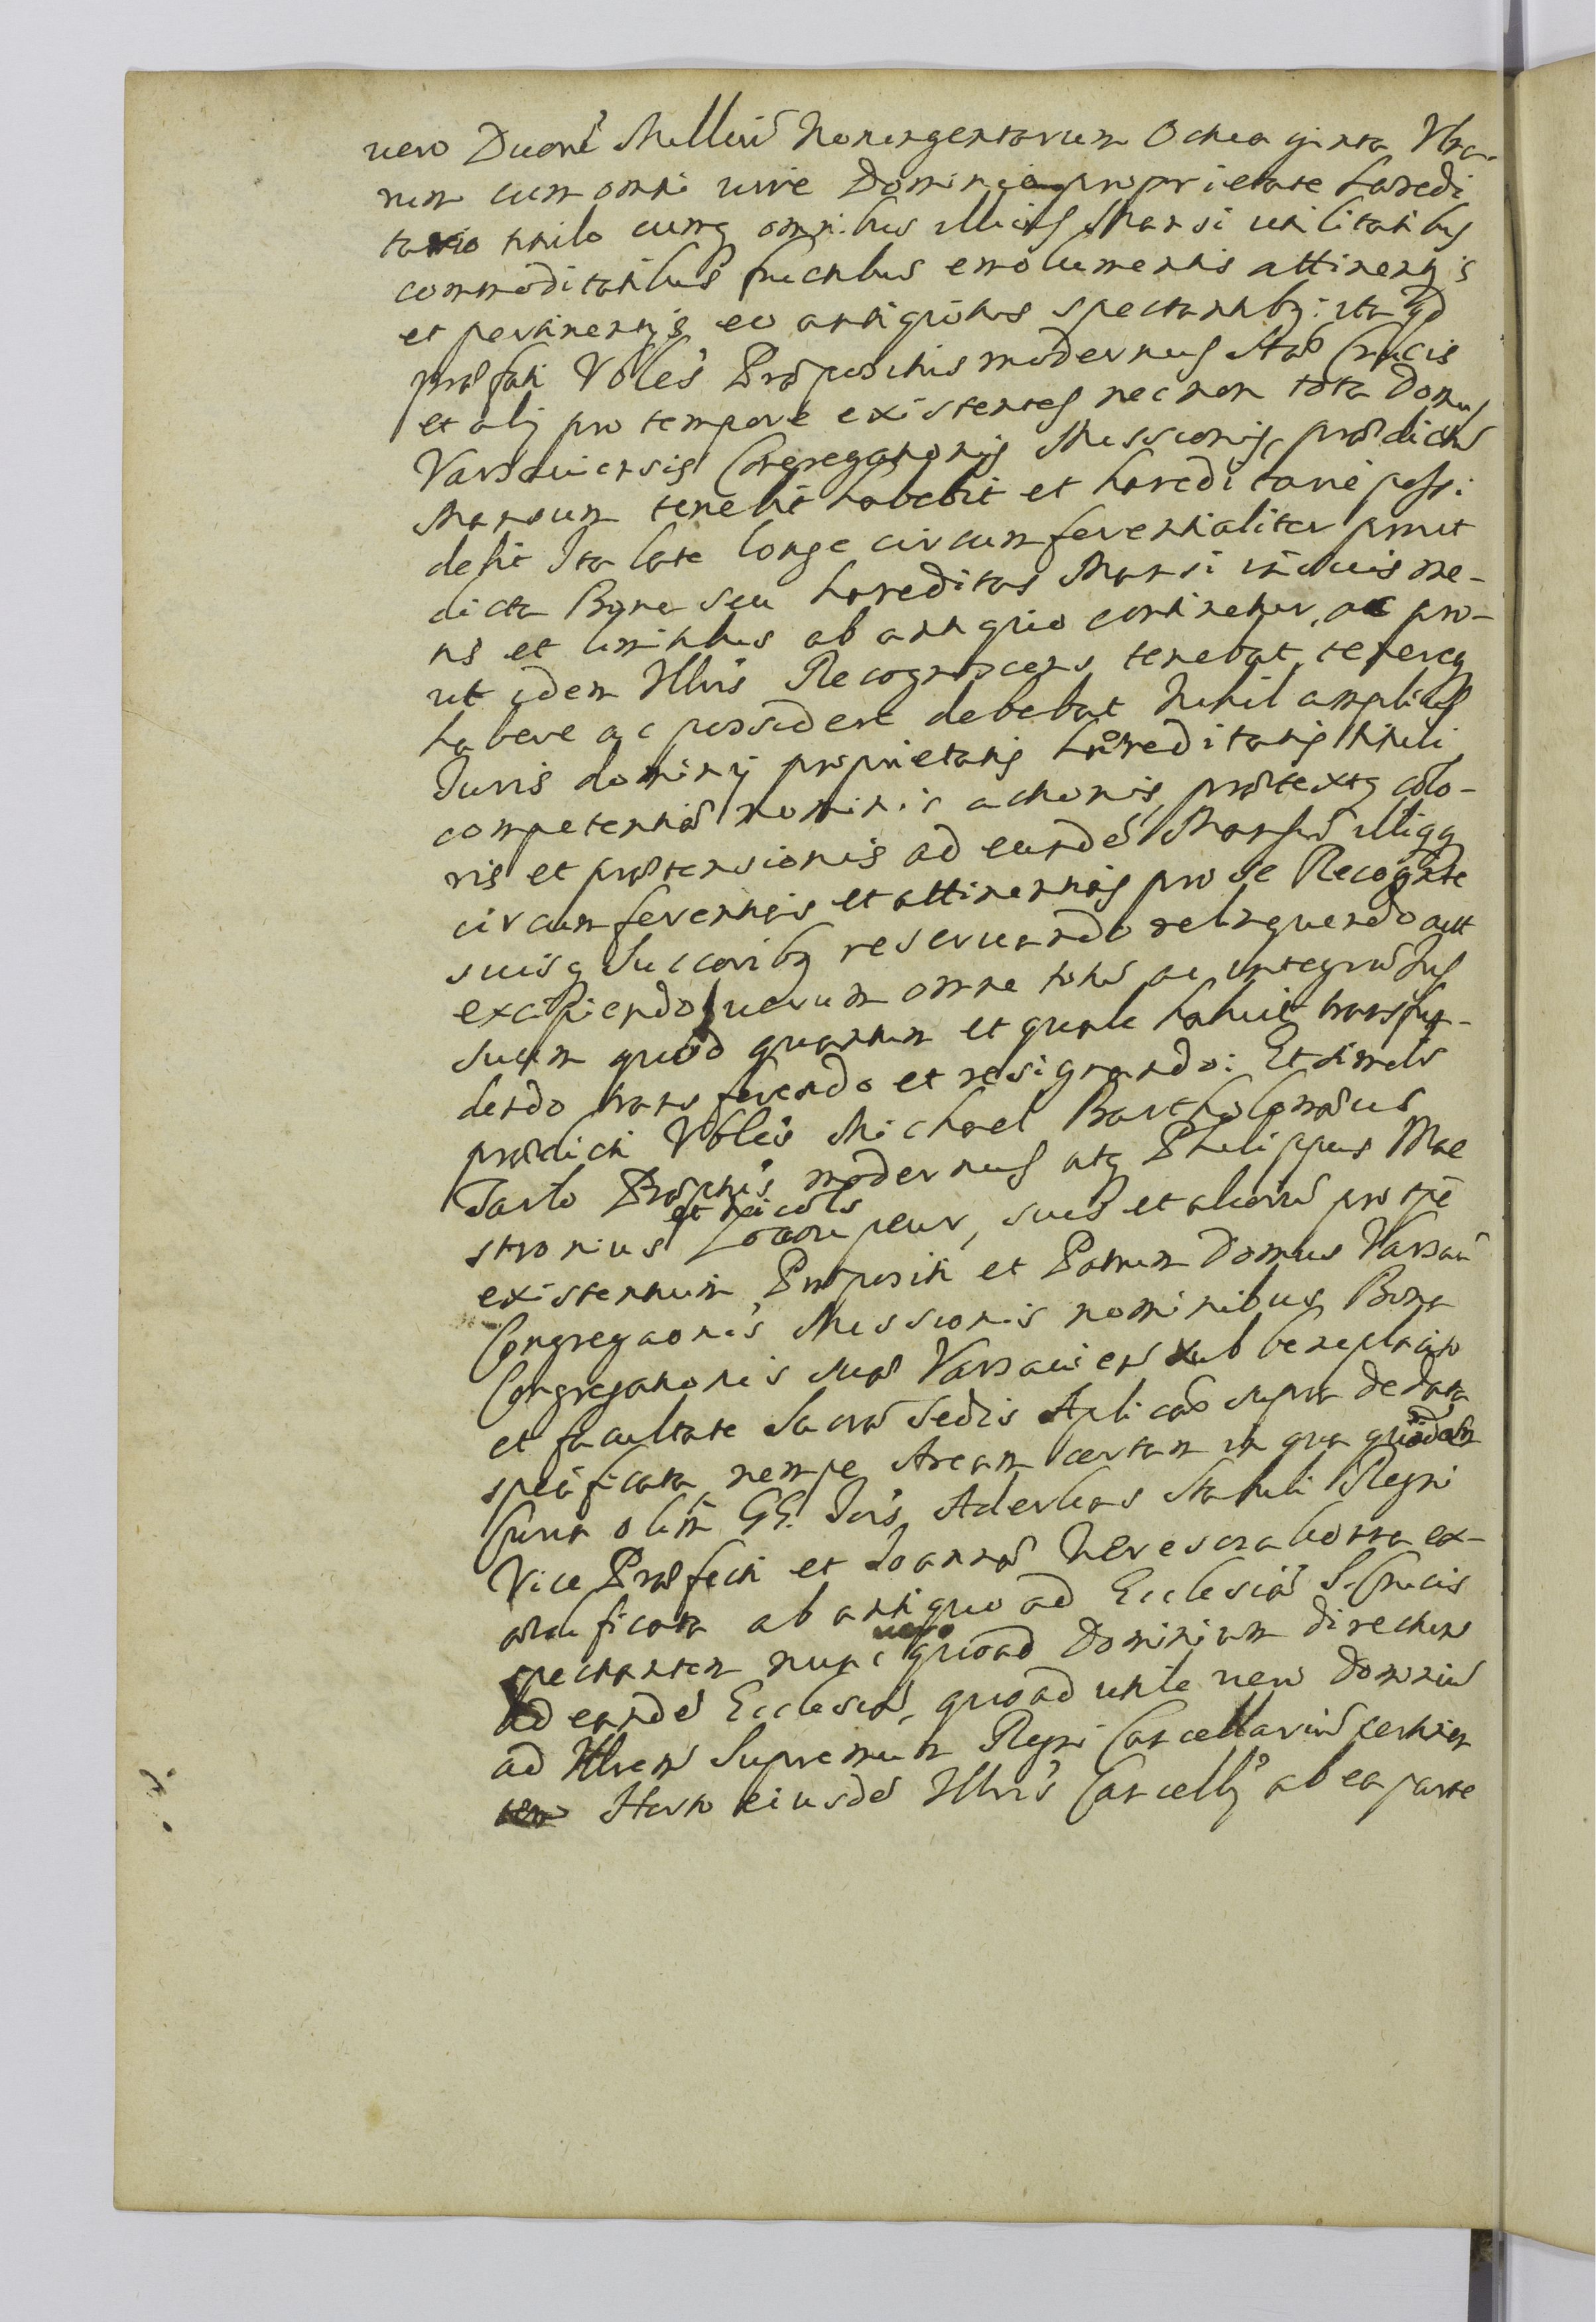 uero Duorũ Milliũ Noningentarum Octuaginta Vlna-
rum cum omni iure Dominio proprietate hæredi
tario titulo cumq omnibus illius Mansi utilitatibus
commoditatibus fructibus emolumentis attinentijs
et pertinentijs eo antiquitus spectantibq: ita qd
præfati Vbles Præpositus modernus Stæ Crucis
et alij pro tempore existentes nec non tota Domus
Varsauiensis Congregationis Missionis prædictũ
Mansum tenebit habebit et hæreditarie possi
debit Ita late longe circumferentialiter prout
dicta Bona seu hæreditas Mansi in suis me-
tis et limitibus ab antiquo continetur, ac pro-
ut idem Illris Recognoscens tenebat, tenereq
habere ac possidere debebat Nihil amplius
Juris dominij proprietatis hæreditatis tituli
competentiæ nominis actionis prætextq colo-
ris et prætensionis ad eundẽ Mansũ illiqq
circumferentijs et attinentijs pro se Recognte
suisq Succoribq reseruando relinquendo aut
excipiendo, uerum omne totũ ac integrũ Jus
suum quod quantum et quale habuit transfun-
dendo transferendo et resignando: Et simili
prædicti Vbles Michael Bartholomæus
Tarło Præptus modernus atq Philippus Mae
stronius et Nicols Locou peur, suis et aliorũ pro tpẽ
existentium Præpositi et Patrum Domus Varsaũ
Congregaonis Missionis nominibus Bona
Congregationis suæ Varsauien sub beneplacito
et facultate Sacræ Sedis Aplicæ supra de data
specificata nempe Aream certam in qua quidem
Curia olim GG. Jois Aderkas Stabuli Regni
Vice Præfecti et Joannæ Neresczabotta ex-
ædificata ab antiquo ad Ecclesiã S. Crucis
spectantem nunc uero quoad Dominium directum
ad eandẽ Ecclesiã, quoad utile uero Dominiũ
ad Illrem Supremum Regni Cancellariũ pertinen
tem Horto eiusdẽ Illris Cancellj ab ea parte